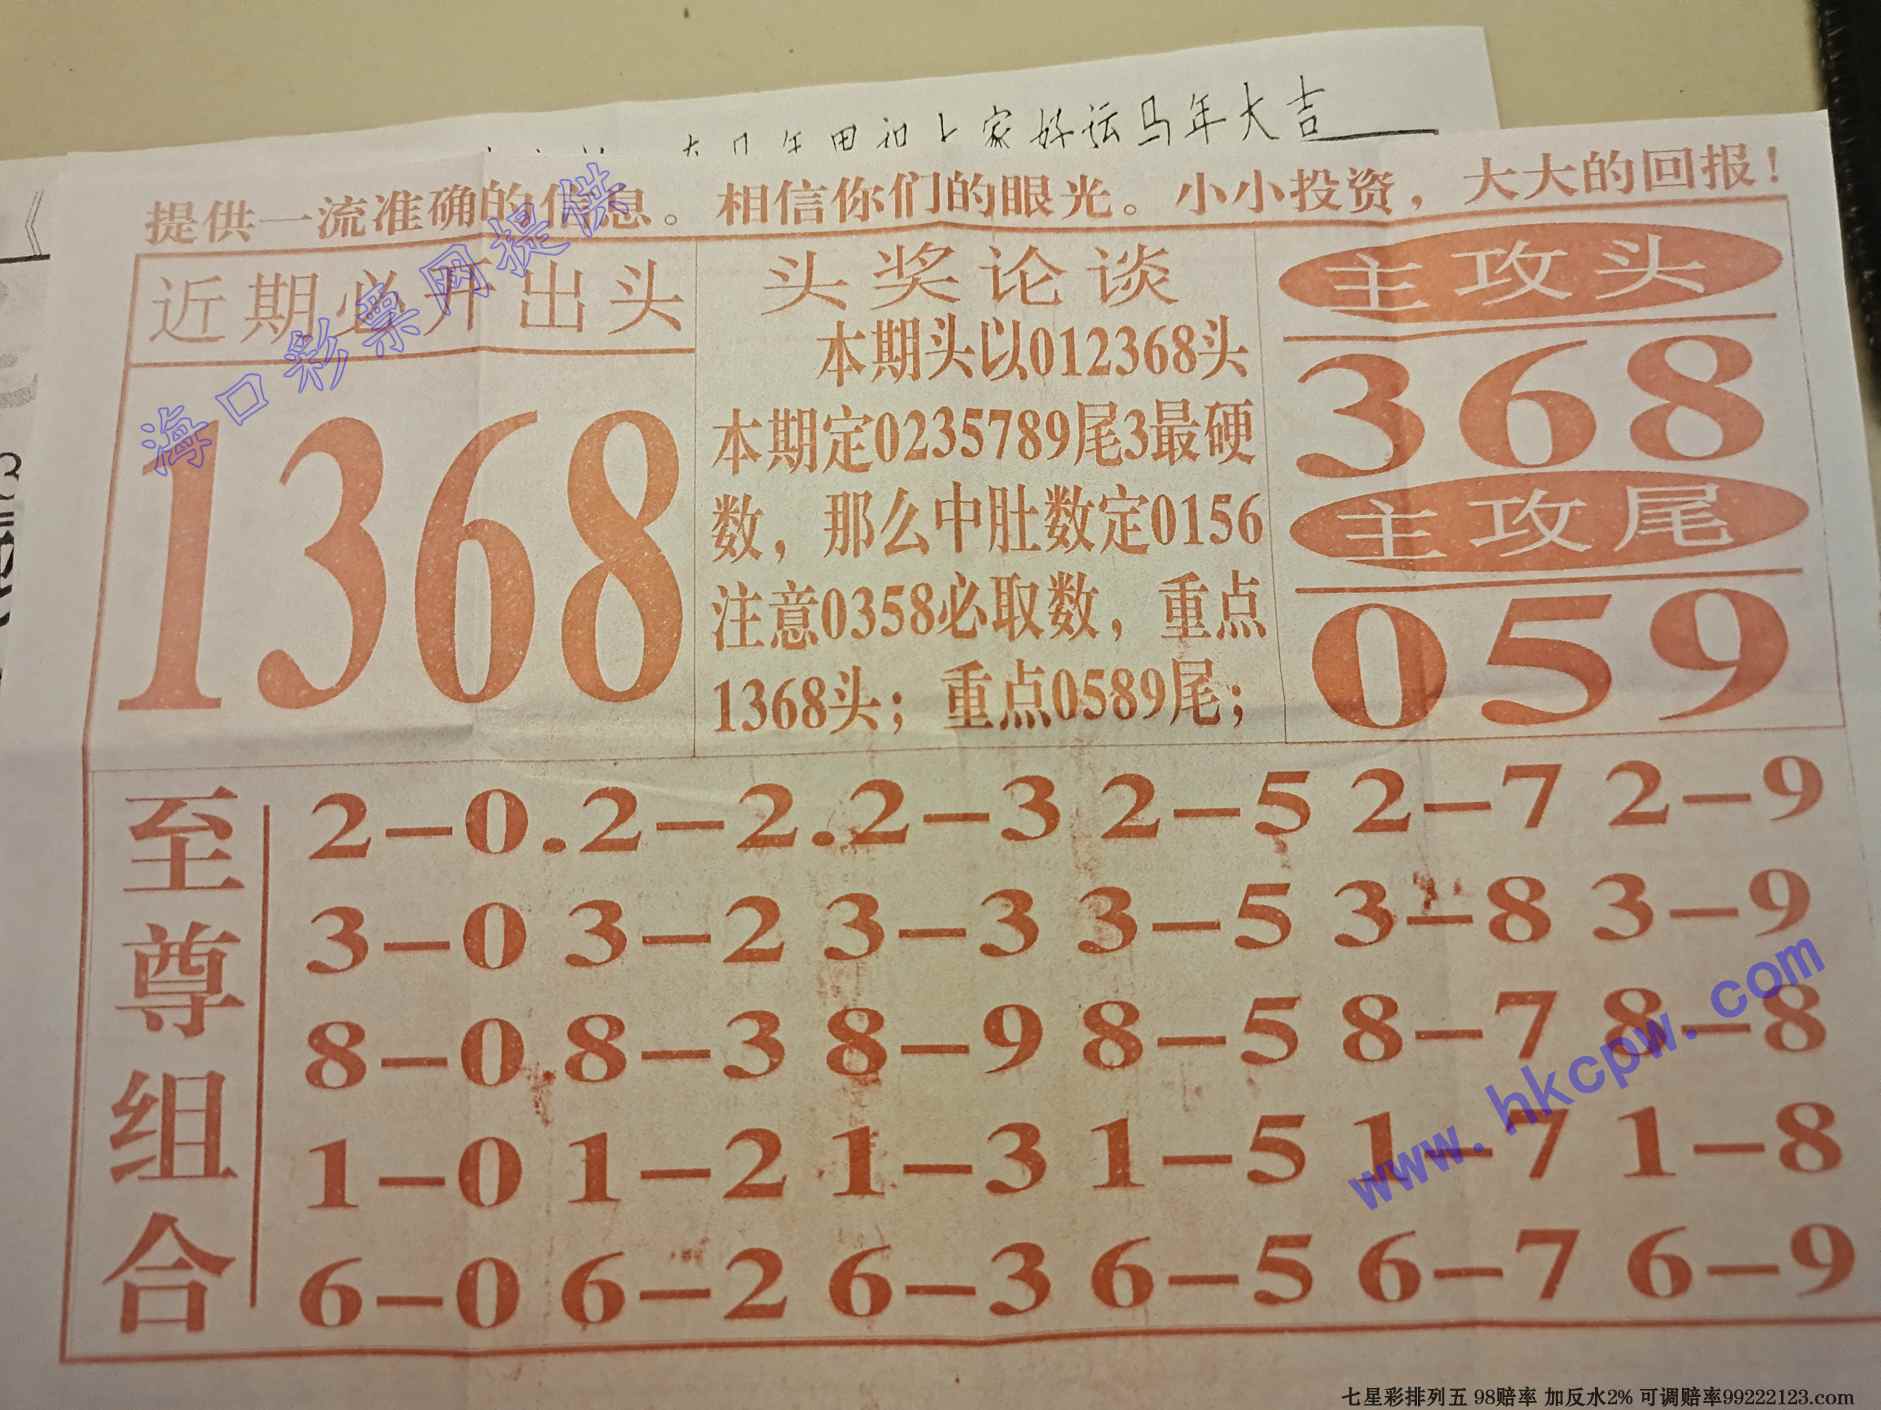 家好运马年大吉
提供一流准确的信息。相信你们的眼光。小小投资，大大的回报！
近期必开出头
1368
头奖论谈
本期头以012368头
本期定0235789尾3最硬
数，那么中肚数定0156
注意0358必取数，重点
1368头；重点0589尾；
主攻头
368
主攻尾
059
至尊组合
2-0.2-2.2-3 2-5 2-7 2-9
3-0 3-2 3-3 3-5 3-8 3-9
8-0.8-3 8-9 8-5 8-7 8-8
1-0 1-2 1-3 1-5 1-7 1-8
6-0 6-2 6-3 6-5 6-7 6-9
海口彩票网提供
www.hkcpw.com
七星彩排列五 98赔率 加反水2% 可调赔率99222123.com